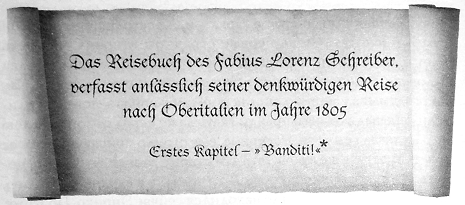 Das Reisebuch des Fabius Lorenz Schreiber,
verfasst anlässlich seiner denkwürdigen Reise
nach Oberitalien im Jahre 1805
Erstes Kapitel – »Banditi!«*